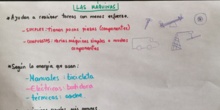 LAS MÁQUINAS
- Ayudan a realizar tareas con menos esfuerzo.
- SIMPLES: Tienen pocas piezas (componentes)
- COMPUESTAS: Varias máquinas simples o muchos componentes
* Según la energía que usan:
- Manuales: bicicleta
- Eléctricas:
- Térmicas: coche